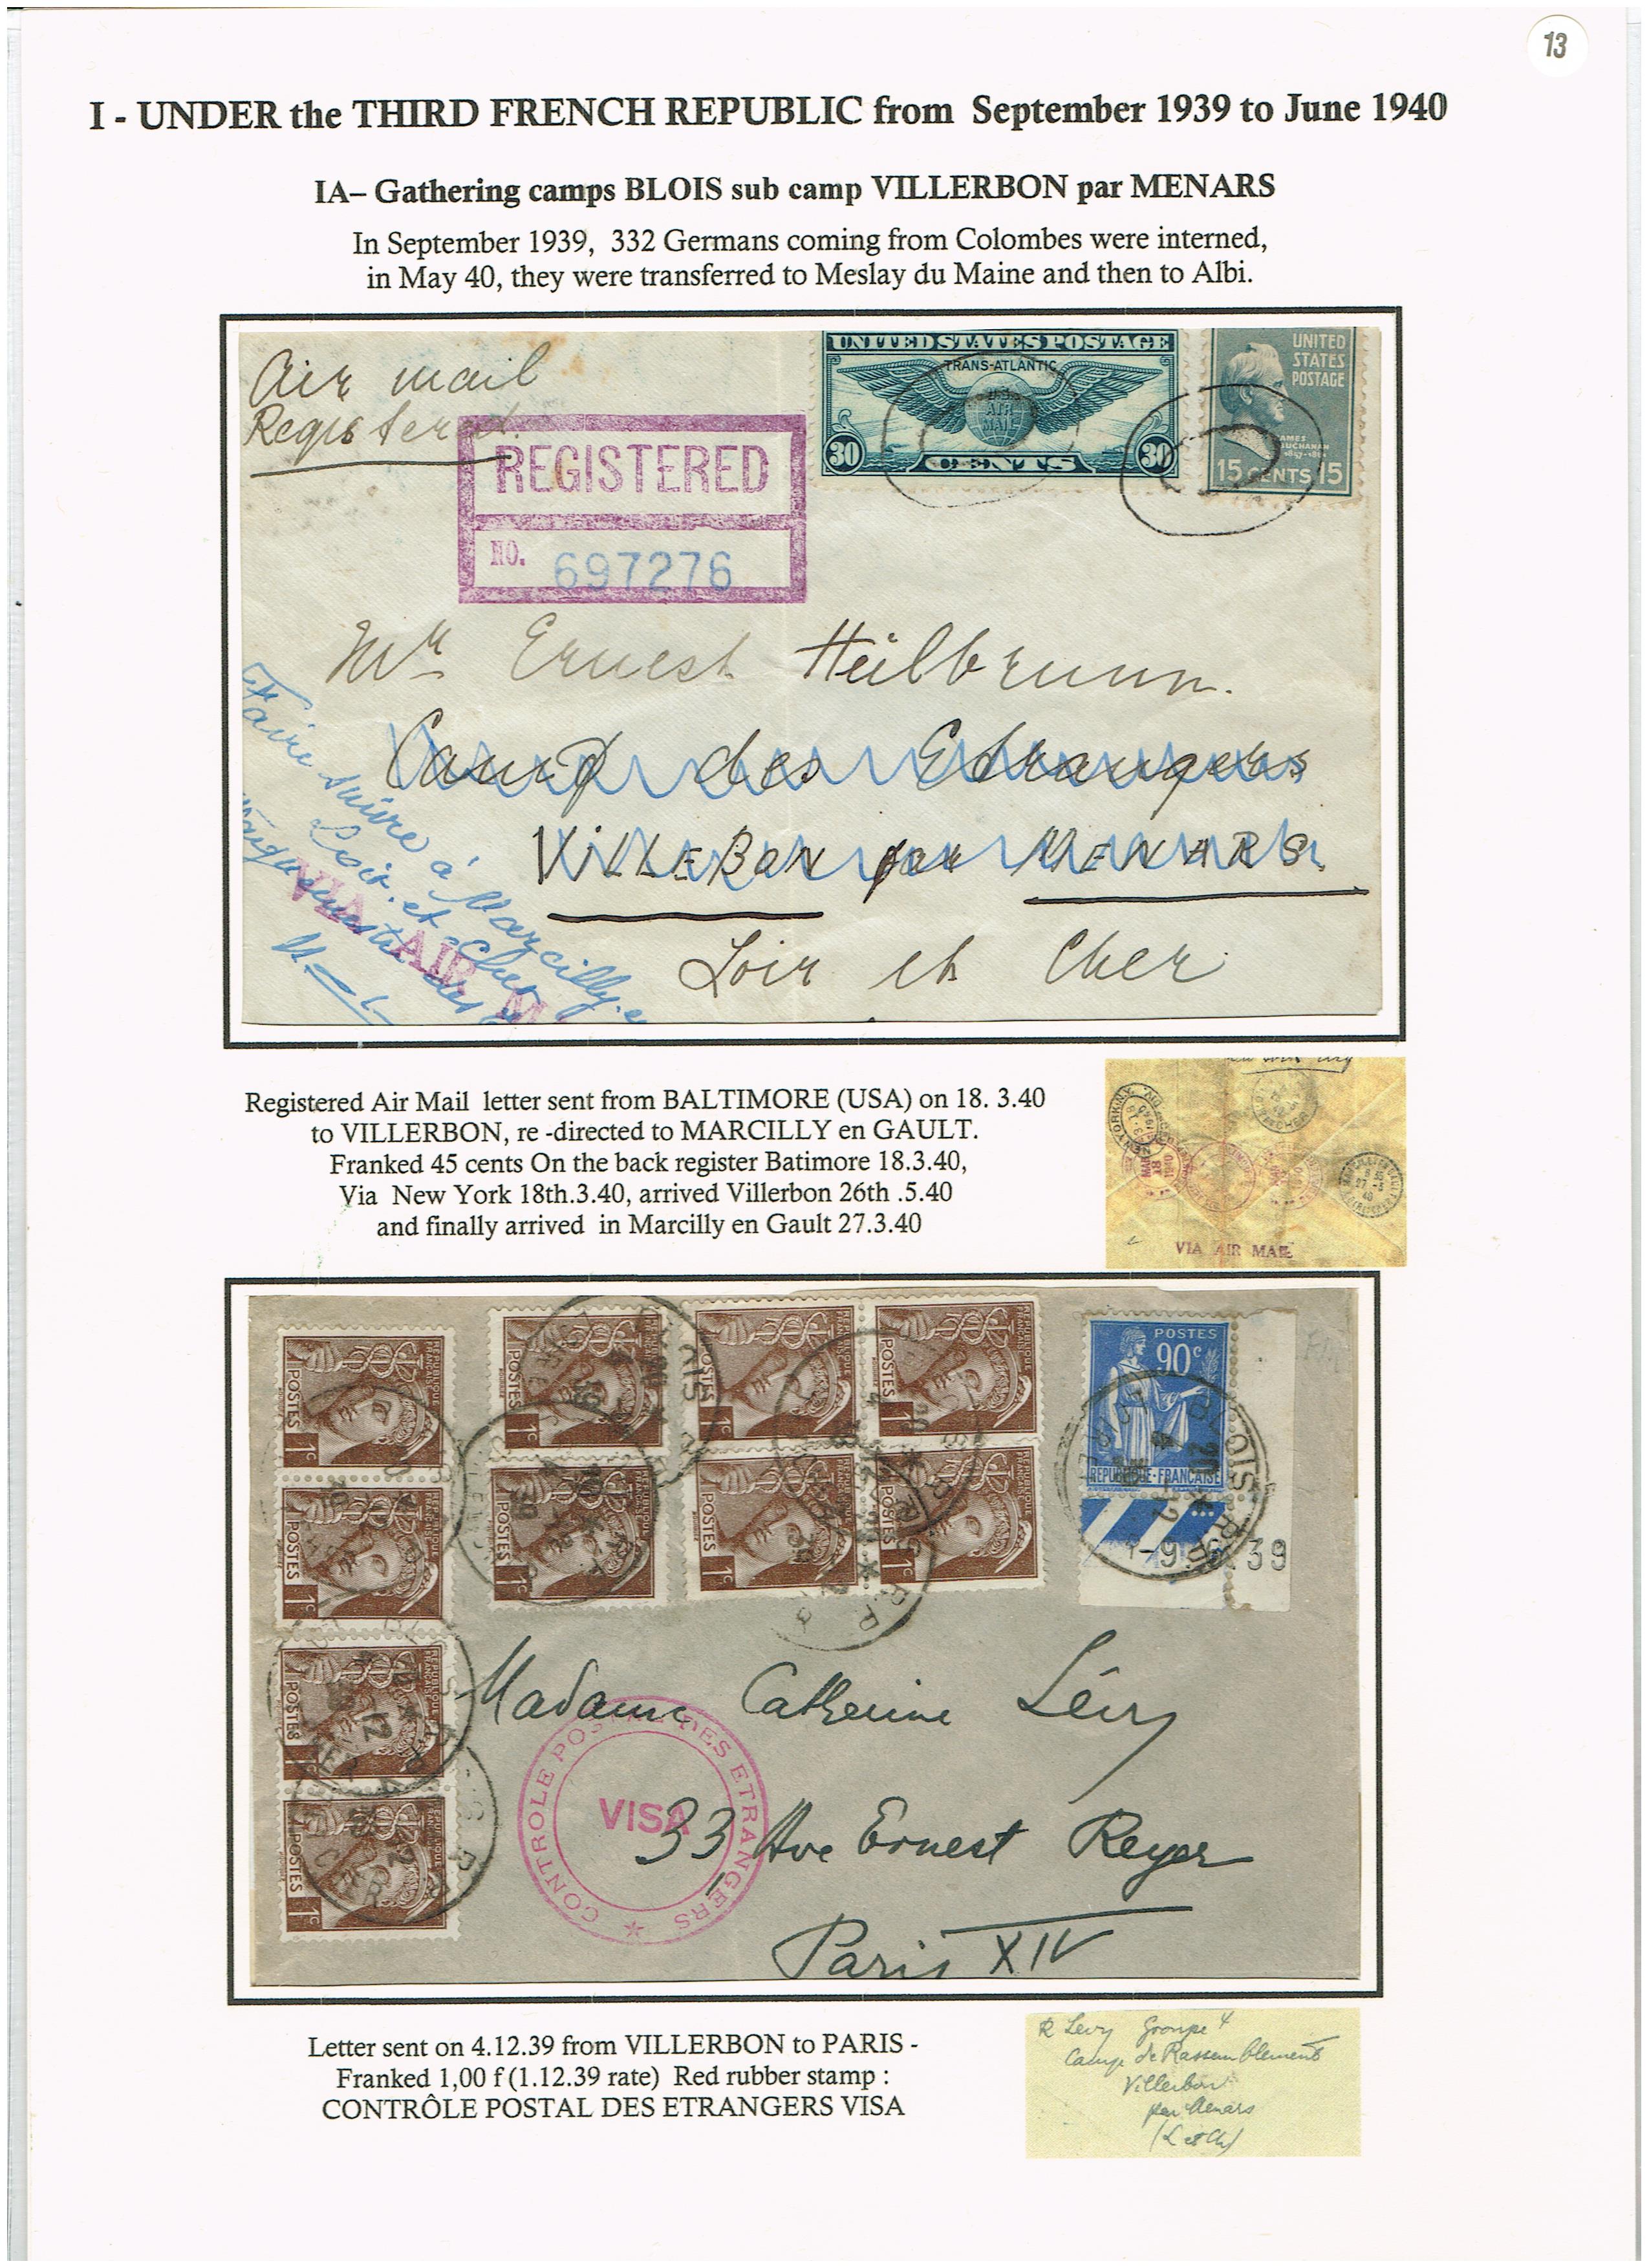 13
I - UNDER the THIRD FRENCH REPUBLIC from September 1939 to June 1940
IA– Gathering camps BLOIS sub camp VILLERBON par MENARS
In September 1939, 332 Germans coming from Colombes were interned,
in May 40, they were transferred to Meslay du Maine and then to Albi.
Air mail
Registered
REGISTERED
NO. 697276
UNITED STATES POSTAGE
TRANS-ATLANTIC
U.S.
AIR
MAIL
30 CENTS 30
UNITED
STATES
POSTAGE
JAMES
BUCHANAN
1857-1861
15 CENTS 15
Mr Ernest Heilbrunn.
Camp des Etrangers
VILLEBON par MENARS.
Loir et Cher
Faire suivre à Marcilly-e
Loir-et-Cher
VIA AIR M
Registered Air Mail letter sent from BALTIMORE (USA) on 18. 3.40
to VILLERBON, re -directed to MARCILLY en GAULT.
Franked 45 cents On the back register Batimore 18.3.40,
Via New York 18th.3.40, arrived Villerbon 26th .5.40
and finally arrived in Marcilly en Gault 27.3.40
VIA AIR MAIL
REPUBLIQUE FRANÇAISE POSTES 1c
POSTES
90c
REPUBLIQUE-FRANÇAISE
BLOIS R.P.
39
Madame Catherine Lévy
CONTROLE POSTAL DES ETRANGERS
VISA
33 Ave Ernest Reyer
Paris XIV
Letter sent on 4.12.39 from VILLERBON to PARIS -
Franked 1,00 f (1.12.39 rate) Red rubber stamp :
CONTRÔLE POSTAL DES ETRANGERS VISA
R Levy Groupe 4
Camp de Rassemblement
Villerbon
par Menars
(L et Ch)